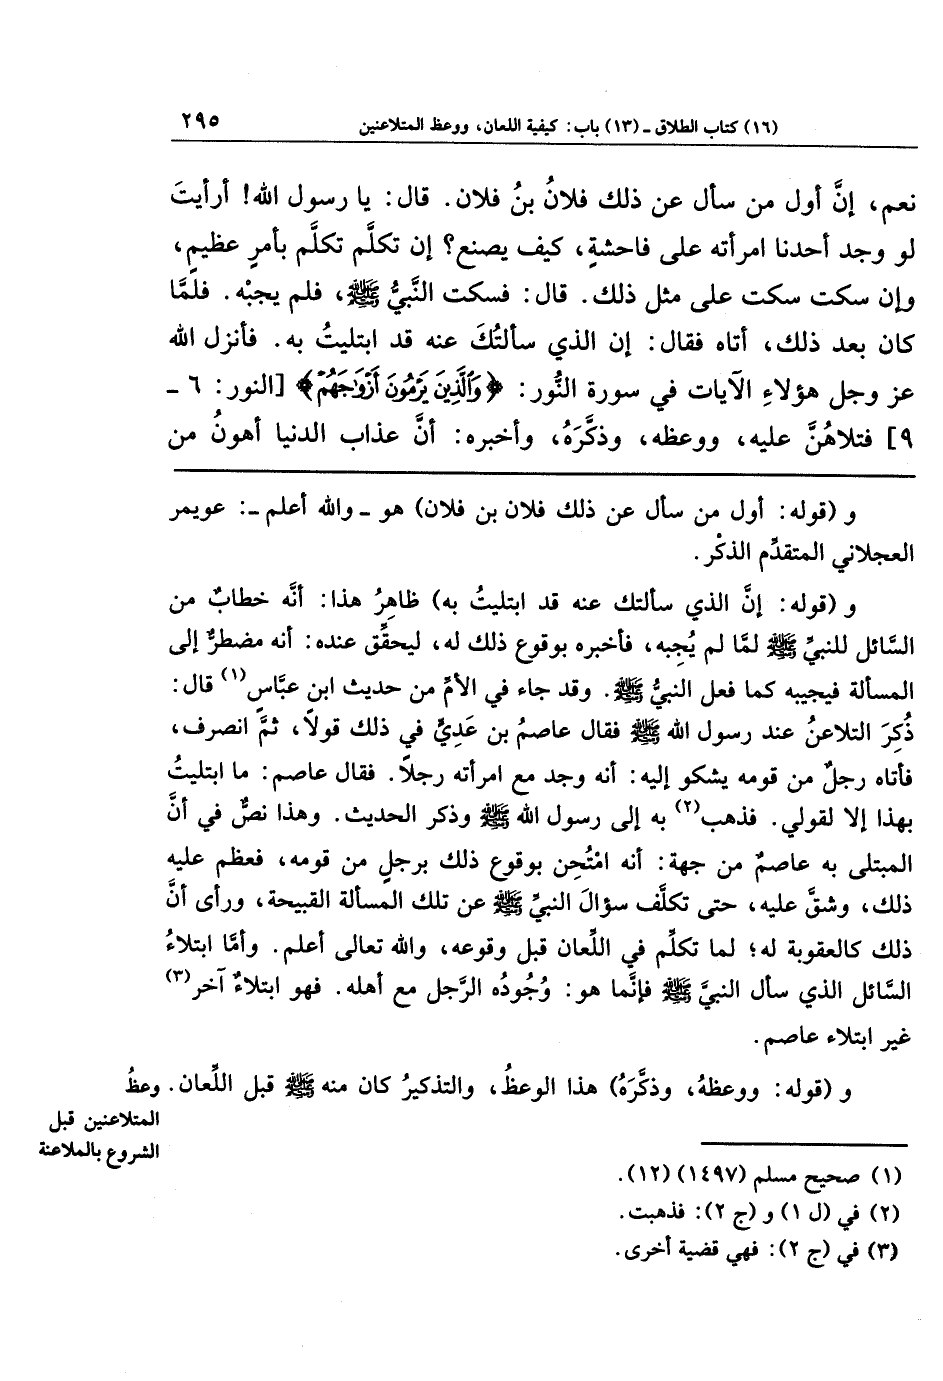 (١٦) كتاب الطلاق ـ (١٣) باب: كيفية اللعان، ووعظ المتلاعنين
٢٩٥
نعم، إنَّ أول من سأل عن ذلك فلانُ بنُ فلان. قال: يا رسول الله! أرأيتَ
لو وجد أحدنا امرأته على فاحشةٍ، كيف يصنع؟ إن تكلَّم تكلَّم بأمرٍ عظيمٍ،
وإن سكت سكت على مثل ذلك. قال: فسكت النَّبيُّ ﷺ، فلم يجبْه. فلمَّا
كان بعد ذلك، أتاه فقال: إن الذي سألتُكَ عنه قد ابتليتُ به. فأنزل الله
عز وجل هؤلاءِ الآيات في سورة النُّور: ﴿وَٱلَّذِينَ يَرْمُونَ أَزْوَٰجَهُمْ﴾ [النور: ٦ ـ
٩] فتلاهُنَّ عليه، ووعظه، وذكَّرَهُ، وأخبره: أنَّ عذاب الدنيا أهونُ من
و (قوله: أول من سأل عن ذلك فلان بن فلان) هو ـ والله أعلم ـ: عويمر
العجلاني المتقدِّم الذكْر.
و (قوله: إنَّ الذي سألتك عنه قد ابتليتُ به) ظاهِرُ هذا: أنَّه خطابٌ من
السَّائل للنبيِّ ﷺ لمَّا لم يُجِبه، فأخبره بوقوع ذلك له، ليحقِّق عنده: أنه مضطرٌّ إلى
المسألة فيجيبه كما فعل النبيُّ ﷺ. وقد جاء في الأمِّ من حديث ابن عبَّاسٍ(١) قال:
ذُكِرَ التلاعنُ عند رسول الله ﷺ فقال عاصمُ بن عَدِيٍّ في ذلك قولاً، ثمَّ انصرف،
فأتاه رجلٌ من قومه يشكو إليه: أنه وجد مع امرأته رجلاً. فقال عاصم: ما ابتليتُ
بهذا إلا لقولي. فذهب(٢) به إلى رسول الله ﷺ وذكر الحديث. وهذا نصٌّ في أنَّ
المبتلى به عاصمٌ من جهة: أنه امْتُحِن بوقوع ذلك برجلٍ من قومه، فعظم عليه
ذلك، وشقَّ عليه، حتى تكلَّف سؤالَ النبيِّ ﷺ عن تلك المسألة القبيحة، ورأى أنَّ
ذلك كالعقوبة له؛ لما تكلِّم في اللِّعان قبل وقوعه، والله تعالى أعلم. وأمَّا ابتلاءُ
السَّائل الذي سأل النبيَّ ﷺ فإنَّما هو: وُجُودُه الرَّجل مع أهله. فهو ابتلاءٌ آخر(٣)
غير ابتلاء عاصم.
و (قوله: ووعظهُ، وذكَّرَهُ) هذا الوعظُ، والتذكيرُ كان منه ﷺ قبل اللِّعان.
وعظُ
المتلاعنين قبل
الشروع بالملاعنة
(١) صحيح مسلم (١٤٩٧) (١٢).
(٢) في (ل ١) و (ج ٢): فذهبت.
(٣) في (ج ٢): فهي قضية أخرى.